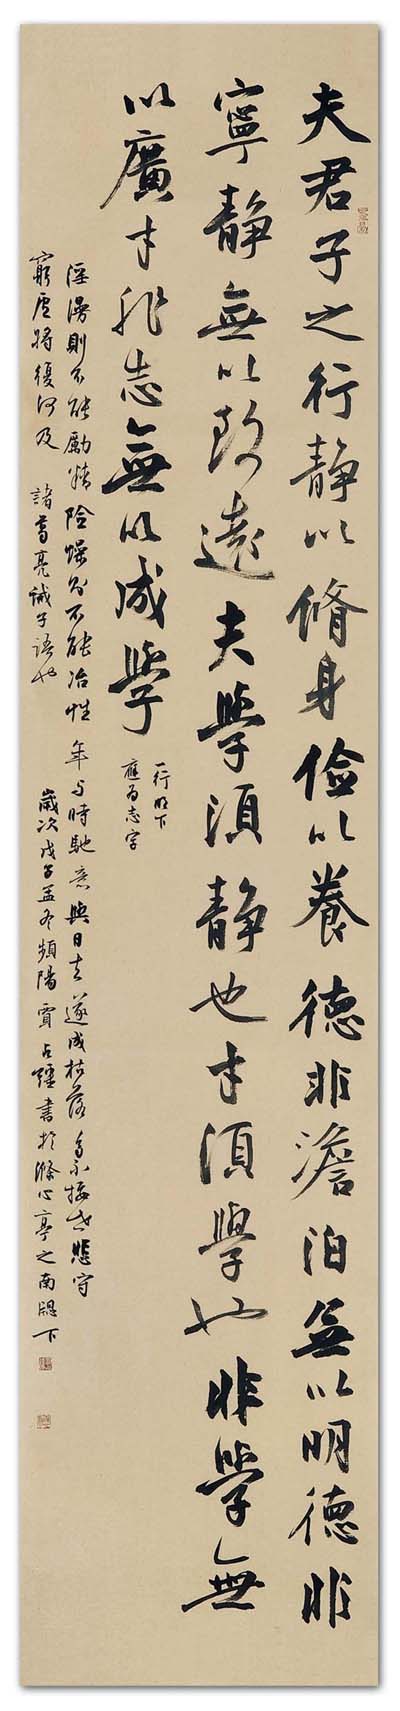 夫君子之行靜以脩身儉以養德非澹泊無以明德非
寧靜無以致遠夫學須靜也才須學也非學無
以廣才非志無以成學
一行明下
應為志字
淫漫則不能勵精險躁則不能冶性年與時馳意與日去遂成枯落多不接世悲守
窮廬將復何及諸葛亮誡子語也歲次戊子孟冬頻陽賈占疆書於滌心亭之南窗下